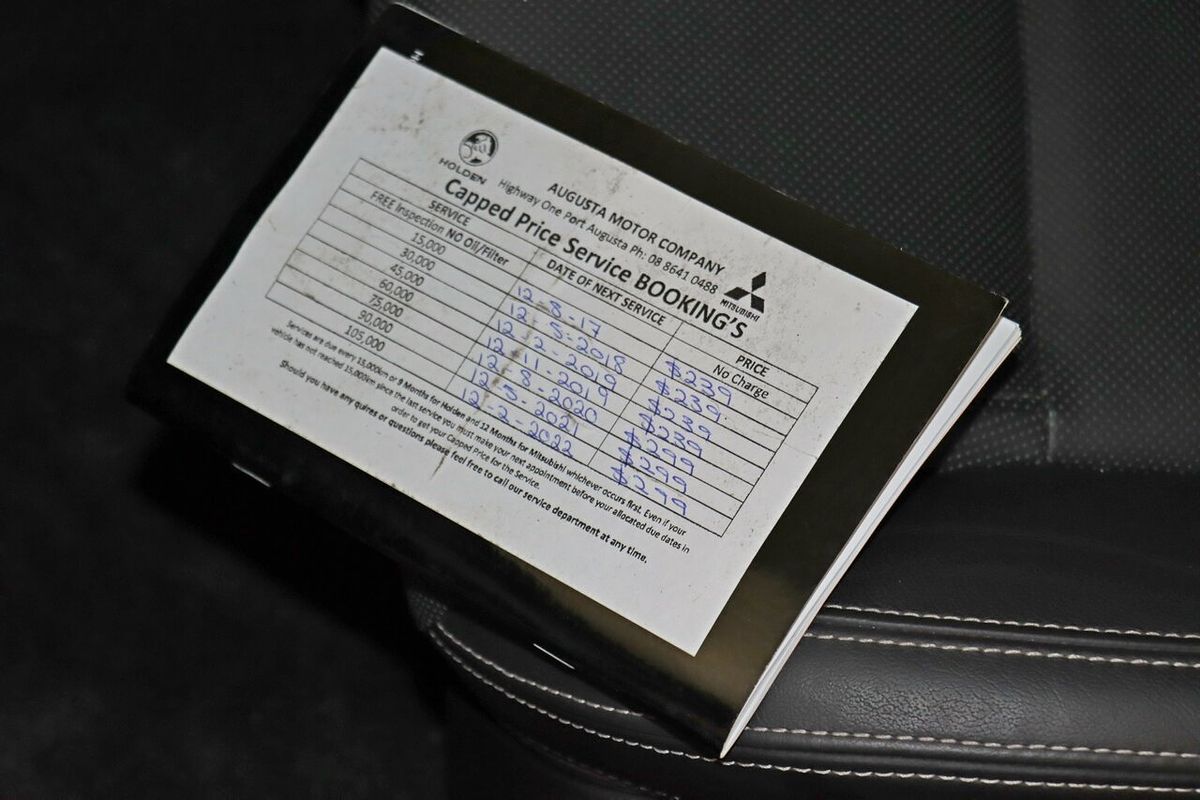 HOLDEN
AUGUSTA MOTOR COMPANY
Highway One Port Augusta Ph: 08 8641 0488
MITSUBISHI
Capped Price Service BOOKING'S
SERVICE DATE OF NEXT SERVICE PRICE
FREE Inspection NO Oil/Filter No Charge
15,000 12-8-17 $239
30,000 12-5-2018 $239
45,000 12-2-2019 $239
60,000 12-11-2019 $239
75,000 12-8-2020 $299
90,000 12-5-2021 $299
105,000 12-2-2022 $299
Services are due every 15,000km or 9 Months for Holden and 12 Months for Mitsubishi whichever occurs first. Even if your
vehicle has not reached 15,000km since the last service you must make your next appointment before your allocated due dates in
order to get your Capped Price for the Service.
Should you have any quires or questions please feel free to call our service department at any time.